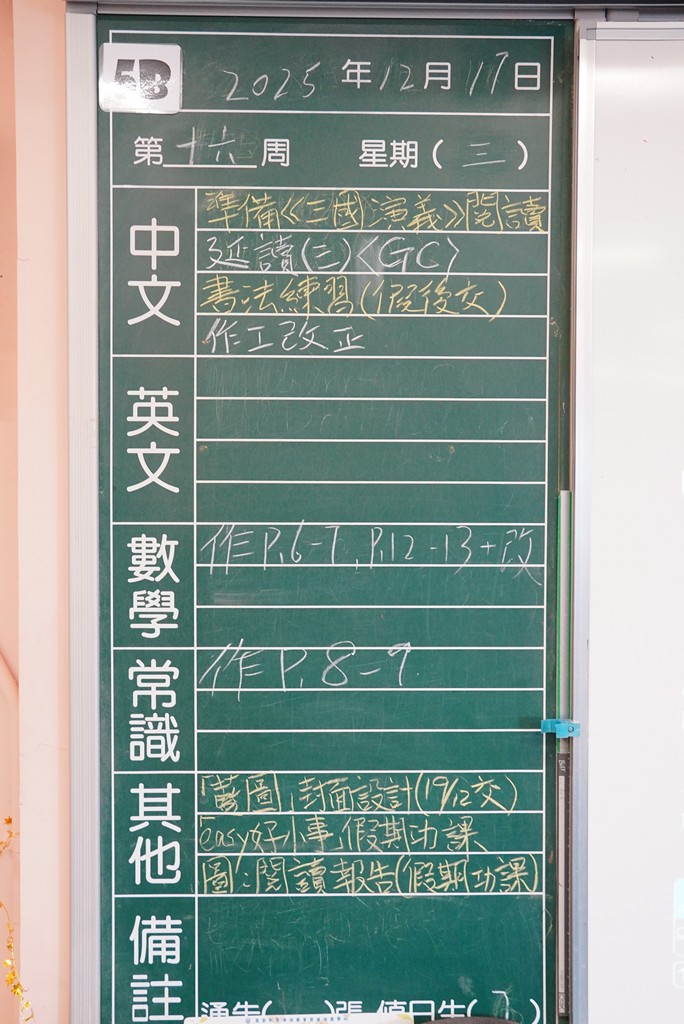 5B
2025年12月17日
第十六周 星期(三)
中文
準備《三國演義》閱讀
延讀(三)〈GC〉
書法練習(假後交)
作工改正
英文
數學
作P.6-7, P.12-13+改
常識
作P.8-9.
其他
「藝圖」封面設計(19/12交)
「easy好小事」假期功課
圖:閱讀報告(假期功課)
備註
通告( )張 值日生( )